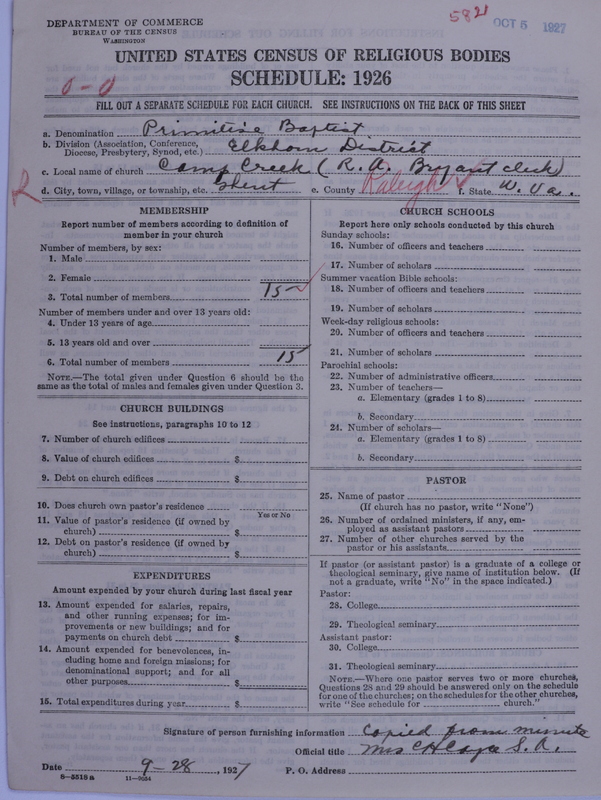 DEPARTMENT OF COMMERCE
BUREAU OF THE CENSUS
WASHINGTON
5821
OCT 5 1927
UNITED STATES CENSUS OF RELIGIOUS BODIES
SCHEDULE: 1926
0-0
FILL OUT A SEPARATE SCHEDULE FOR EACH CHURCH. SEE INSTRUCTIONS ON THE BACK OF THIS SHEET
a. Denomination Primitive Baptist
b. Division (Association, Conference, Diocese, Presbytery, Synod, etc.) Elkhorn District
c. Local name of church Camp Creek (R. A. Bryant clerk)
R d. City, town, village, or township, etc. Ghent e. County Raleigh f. State W. Va.
MEMBERSHIP
Report number of members according to definition of
member in your church
Number of members, by sex:
1. Male
2. Female
3. Total number of members 15
Number of members under and over 13 years old:
4. Under 13 years of age
5. 13 years old and over
6. Total number of members 15
NOTE.—The total given under Question 6 should be the
same as the total of males and females given under Question 3.
CHURCH BUILDINGS
See instructions, paragraphs 10 to 12
7. Number of church edifices
8. Value of church edifices $
9. Debt on church edifices $
10. Does church own pastor's residence
Yes or No
11. Value of pastor's residence (if owned by
church) $
12. Debt on pastor's residence (if owned by
church) $
EXPENDITURES
Amount expended by your church during last fiscal year
13. Amount expended for salaries, repairs,
and other running expenses; for im-
provements or new buildings; and for
payments on church debt $
14. Amount expended for benevolences, in-
cluding home and foreign missions; for
denominational support; and for all
other purposes $
15. Total expenditures during year $
CHURCH SCHOOLS
Report here only schools conducted by this church
Sunday schools:
16. Number of officers and teachers
17. Number of scholars
Summer vacation Bible schools:
18. Number of officers and teachers
19. Number of scholars
Week-day religious schools:
20. Number of officers and teachers
21. Number of scholars
Parochial schools:
22. Number of administrative officers
23. Number of teachers—
a. Elementary (grades 1 to 8)
b. Secondary
24. Number of scholars—
a. Elementary (grades 1 to 8)
b. Secondary
PASTOR
25. Name of pastor
(If church has no pastor, write "None")
26. Number of ordained ministers, if any, em-
ployed as assistant pastors
27. Number of other churches served by the
pastor or his assistants
If pastor (or assistant pastor) is a graduate of a college or
theological seminary, give name of institution below. (If
not a graduate, write "No" in the space indicated.)
Pastor:
28. College
29. Theological seminary
Assistant pastor:
30. College
31. Theological seminary
NOTE.—Where one pastor serves two or more churches,
Questions 28 and 29 should be answered only on the schedule
for one of the churches; on the schedules for the other churches,
write "See schedule for church."
Signature of person furnishing information Copied from minute
Official title Mrs C H S. A.
Date 9-28, 1927 P. O. Address
8-5518a 11-9554